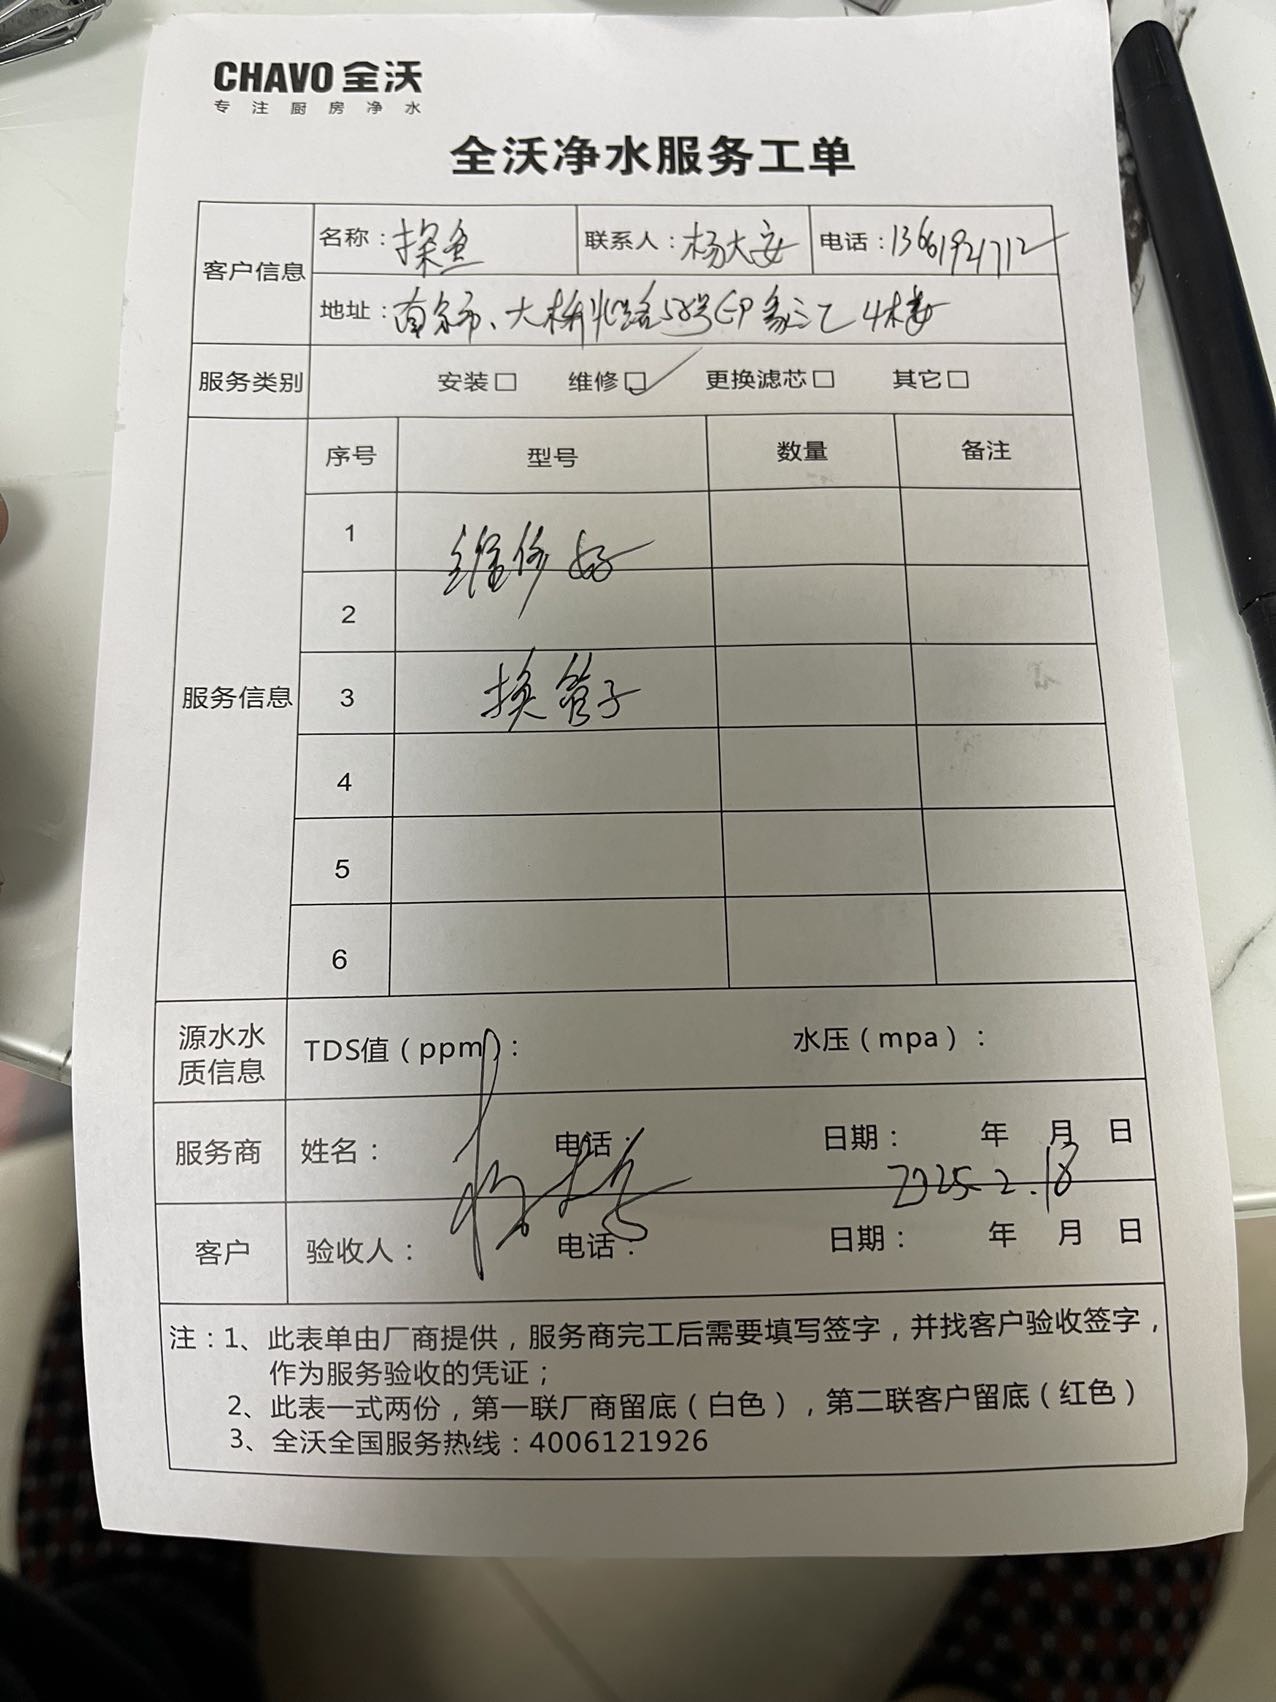 CHAVO 全沃
专注厨房净水
全沃净水服务工单
客户信息
名称：探鱼 联系人：杨大安 电话：13661921712
地址：南京市、大桥北路58号 印象汇4楼
服务类别 安装□ 维修□✓ 更换滤芯□ 其它□
服务信息
序号 型号 数量 备注
1
维修好
2
3 换管子
4
5
6
源水水质信息 TDS值（ppm）： 水压（mpa）：
服务商 姓名： 电话： 日期： 年 月 日
2025.2.18
客户 验收人： 电话： 日期： 年 月 日
注：1、此表单由厂商提供，服务商完工后需要填写签字，并找客户验收签字，
作为服务验收的凭证；
2、此表一式两份，第一联厂商留底（白色），第二联客户留底（红色）
3、全沃全国服务热线：4006121926